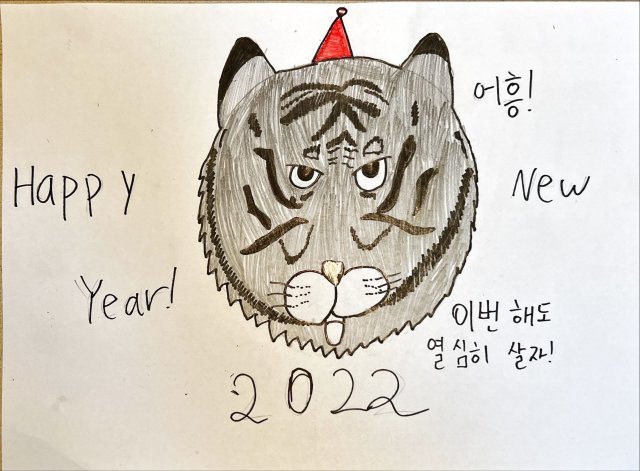 어흥!
Happy New
Year!
이번 해도
열심히 살자!
2022